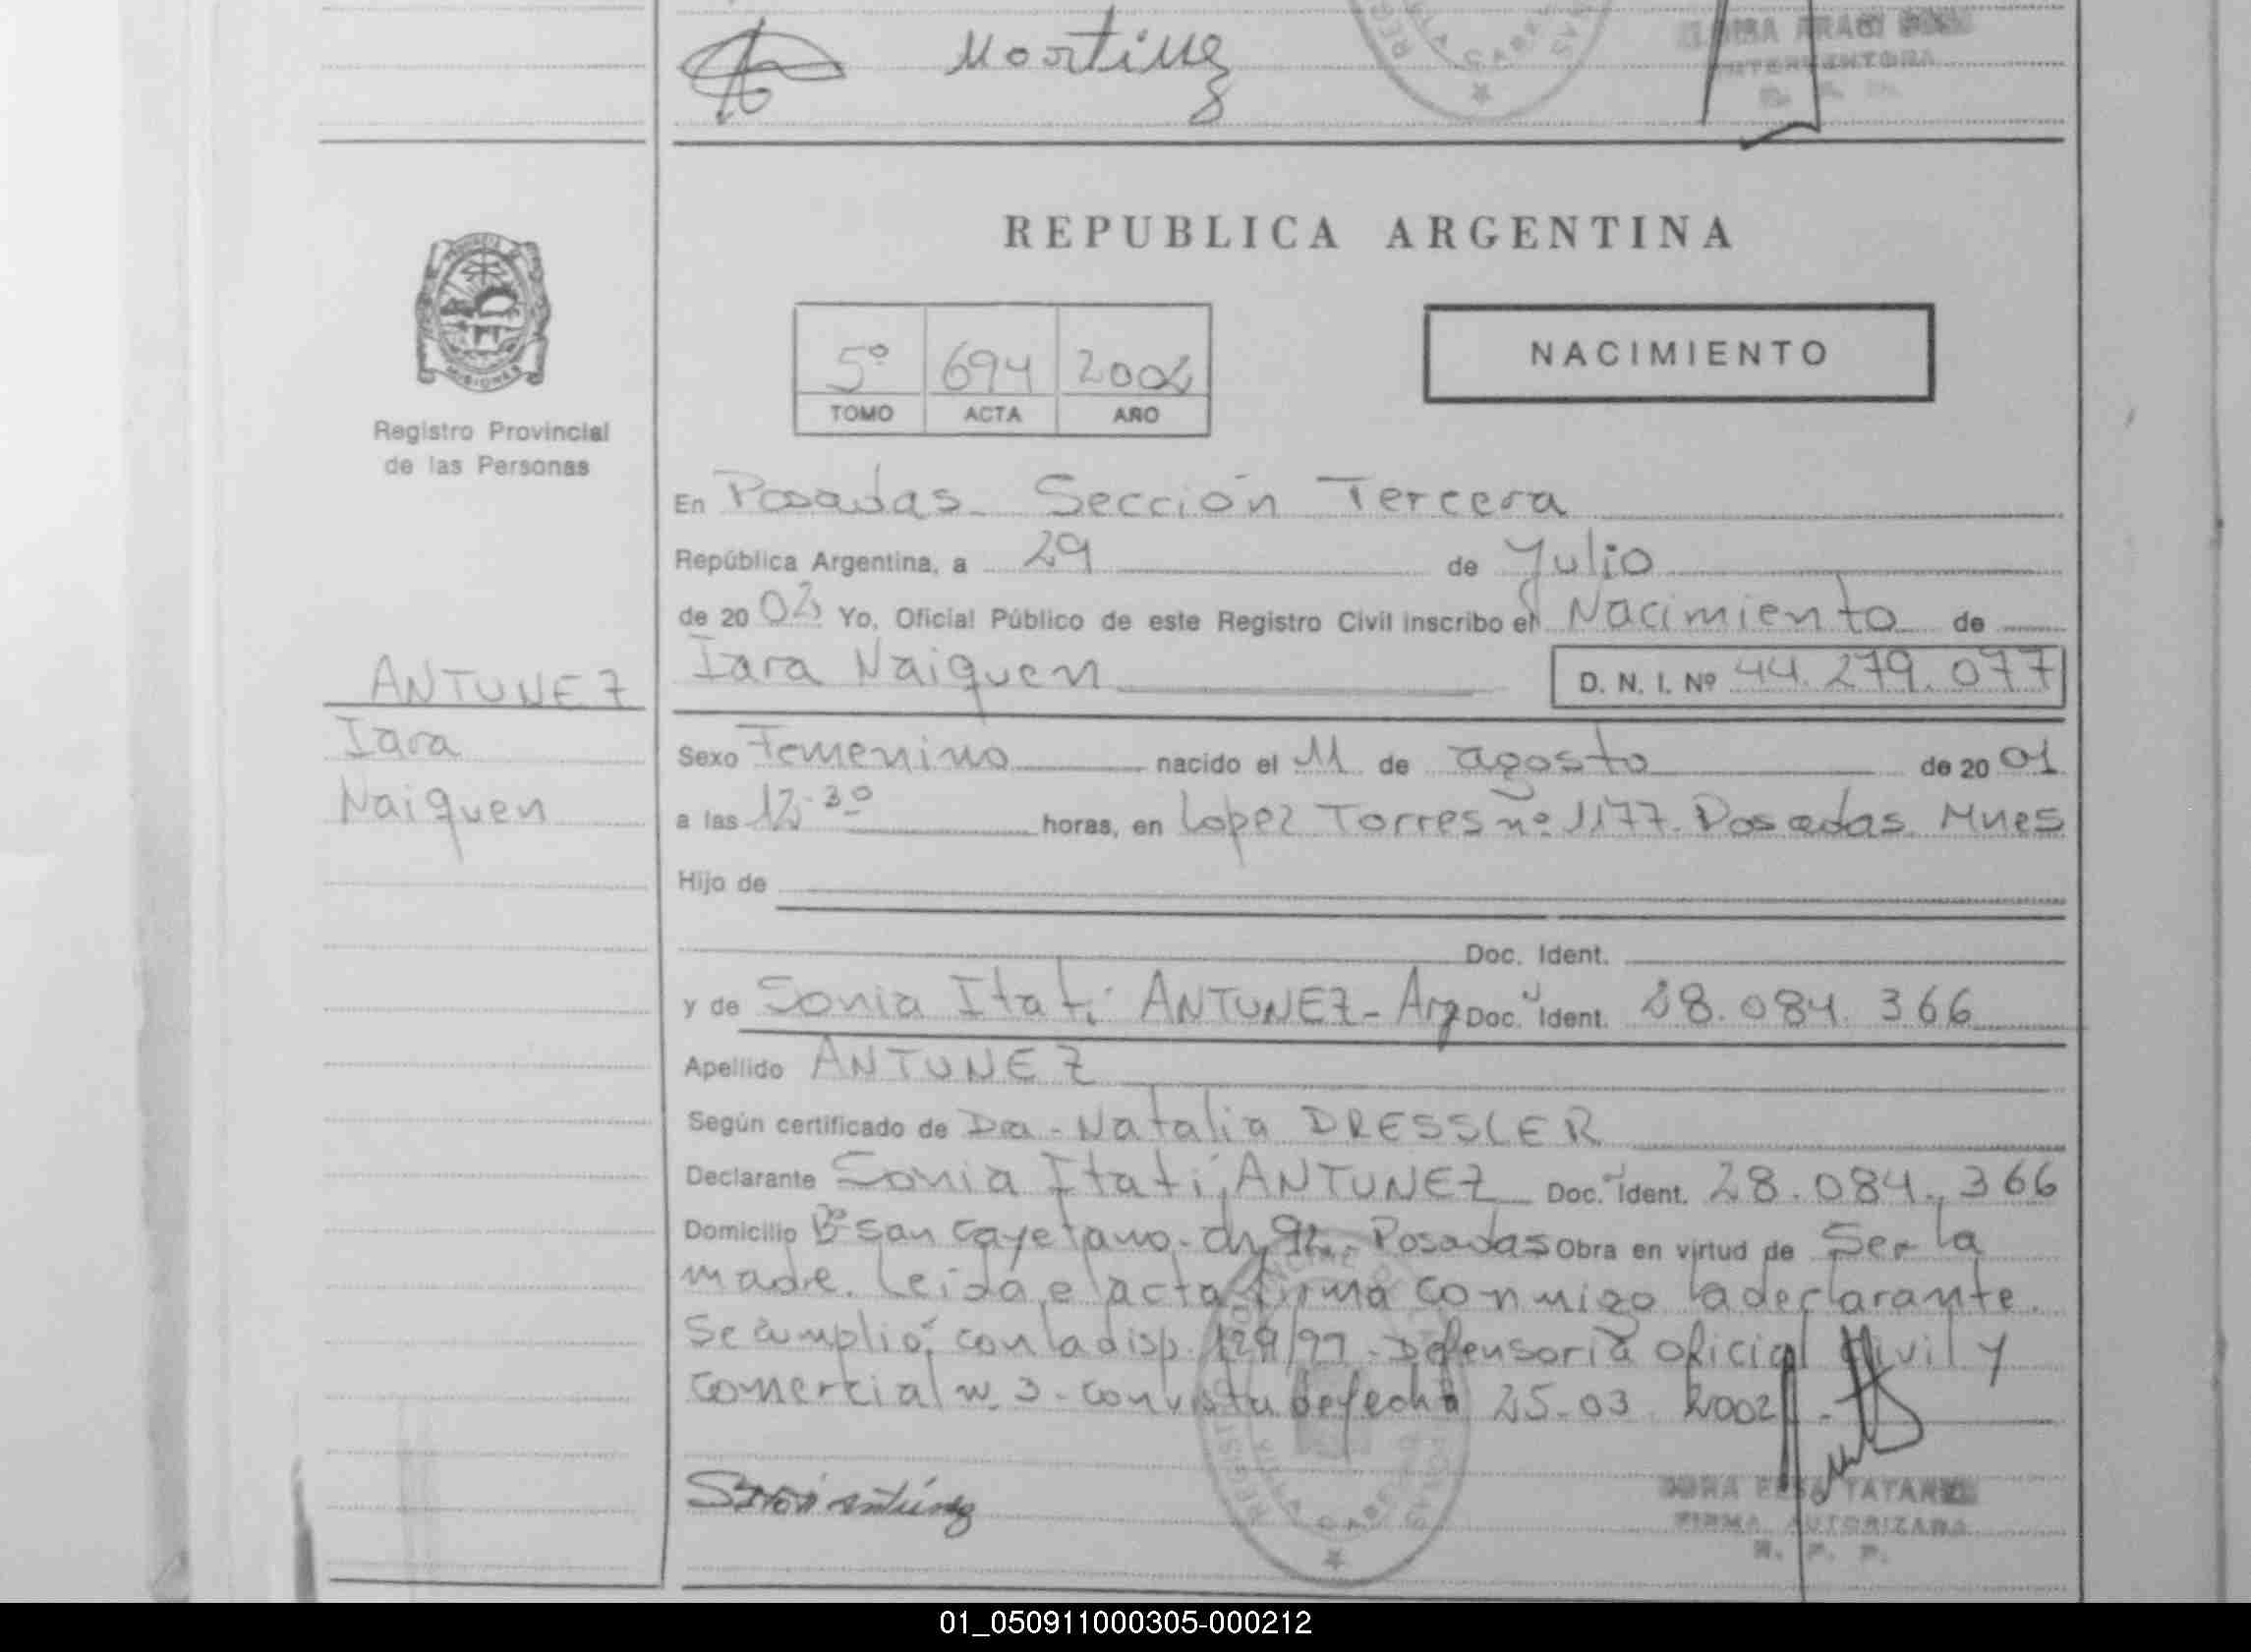 Martinez
REPUBLICA ARGENTINA
5º 694 2002
TOMO ACTA AÑO
NACIMIENTO
MISIONES
Registro Provincial
de las Personas
En Posadas - Sección Tercera
República Argentina, a 29 de Julio
de 20 02 Yo, Oficial Público de este Registro Civil inscribo el Nacimiento de
Iara Naiquen D. N. I. Nº 44.279.077
ANTUNEZ
Iara
Naiquen
Sexo Femenino nacido el 11 de agosto de 20 01
a las 12.30 horas, en Lopez Torres nº 1177. Posadas. Mnes
Hijo de
Doc. Ident.
y de Sonia Itatí ANTUNEZ - Arg Doc. Ident. 28.084.366
Apellido ANTUNEZ
Según certificado de Dra - Natalia DRESSLER
Declarante Sonia Itatí ANTUNEZ Doc. Ident. 28.084.366
Domicilio Bº San Cayetano - Posadas Obra en virtud de Ser la
madre. Leida el acta firma conmigo la declarante.
Se cumplió con la disp. 129/97 - Defensoria oficial Civil y
comercial n. 3 - con vista de fecha 25-03. 2002 -
Sonia Antúnez
FIRMA AUTORIZADA
R. P. P.
01_050911000305-000212